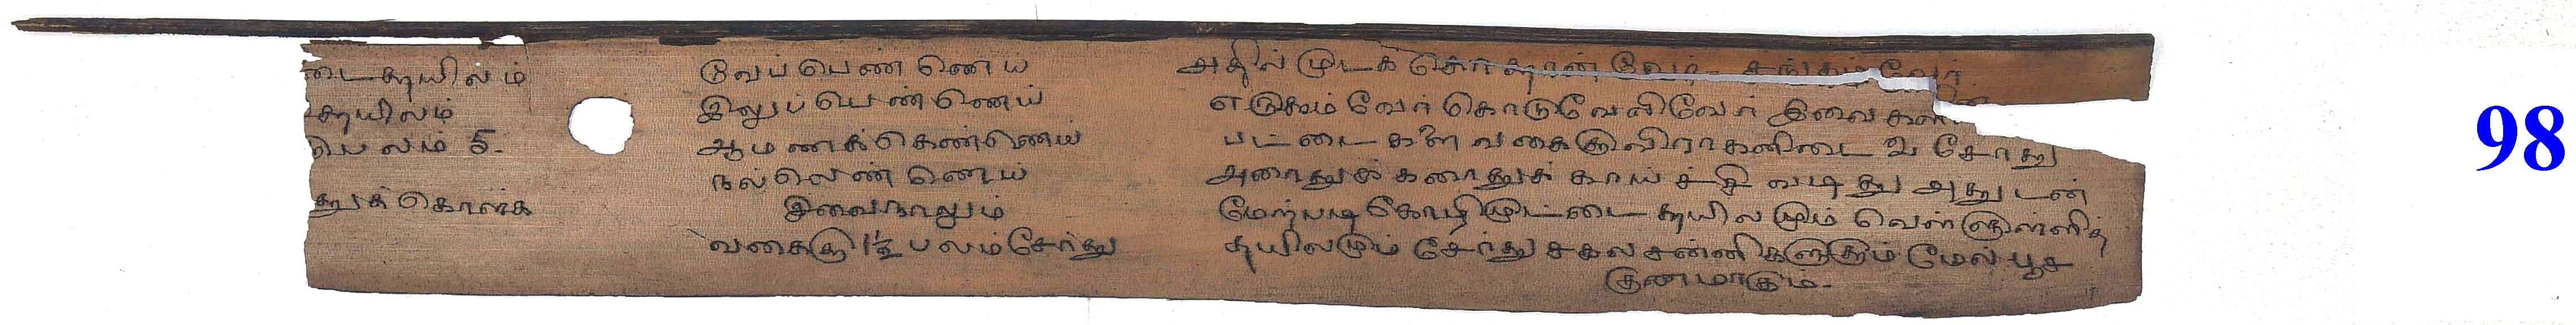 டைதயிலம்
தயிலம்
பலம் 5.
துக் கொள்க
வேப்பெண்ணெய்
இலுப்பெண்ணெய்
ஆமணக்கெண்ணெய்
நல்லெண்ணெய்
இவைநாலும்
வகைக்கு 1½ பலம் சேர்து
அதில் முடக்
வேர் கொடுவேலிவேர் இவைகள்
பட்டை களை வகைக்கு விராகனிடை சேர்து
காய்ச்சி வடிது அதுடன்
மேற்படி கோழிமுட்டை தயிலமும் வெள்ளுள்ளித்
தயிலமும் சேர்து சகல சன்னிகளுகும் மேல் பூச
குணமாகும்.
98